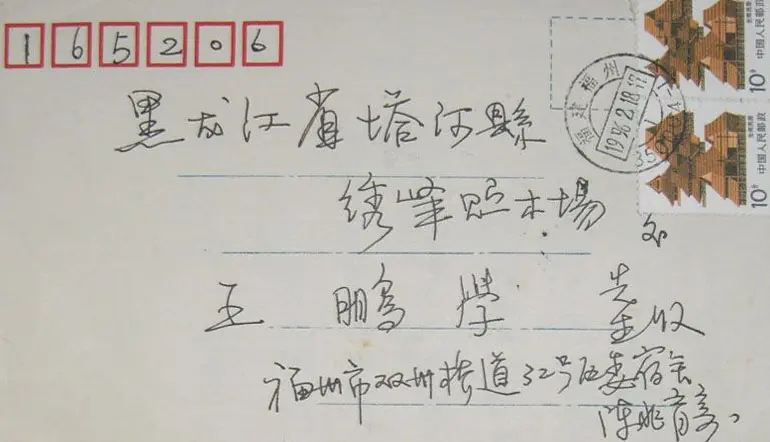 165206
黑龙江省塔河縣
绣峯贮木場
王鹏學先生收
福州市双抛桥道32号区委宿舍
陈兆育寄
福建福州
1996.2.18.17
中国人民邮政
10分
中国人民邮政
10分